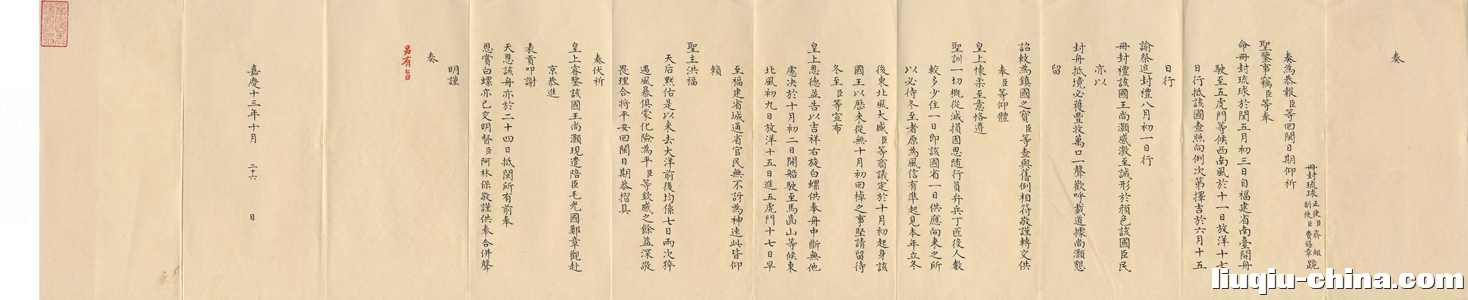 奏
冊封琉球正使臣齊鯤
副使臣費錫章跪
奏為恭報臣等回閩日期仰祈
聖鑒事竊臣等奉
命冊封琉球於閏五月初三日自福建省南臺開舟
駛至五虎門等候西南風於十一日放洋十七
日行抵該國查照向例次第擇吉於六月十五
日行
諭祭進封禮八月初一日行
冊封禮該國王尚灝感激至誠形於顏色該國臣民
亦以
封舟抵境必獲豐收萬口一聲歡呼載道據尚灝懇
留
詔敕為鎮國之寶臣等查與舊例相符敬謹轉交供
奉臣等仰體
皇上懷柔至意恪遵
聖訓一切概從減損因思隨行員弁兵丁匠役人數
較多少住一日即該國省一日供應向來之所
以必待冬至者原為風信有準起見本年立冬
後東北風大盛臣等商議定於十月初起身該
國王以歷來從無十月初回棹之事堅請留待
冬至臣等宣布
皇上恩德並告以吉祥右旋白螺供奉舟中斷無他
慮決於十月初二日開船駛至馬齒山等候東
北風初九日放洋十五日進五虎門十七日早
至福建省城通省官民無不訝為神速此皆仰
賴
聖主洪福
天后默佑是以來去大洋前後均係七日兩次猝
遇風暴俱蒙化險為平臣等欽感之餘益深敬
畏理合將平安回閩日期恭摺具
奏伏祈
皇上睿鑒該國王尚灝現遣陪臣毛光國鄭章觀赴
京恭進
表貢叩謝
天恩該舟亦於二十四日抵閩所有前奉
恩賞白螺亦已交明督臣阿林保敬謹供奉合併聲
明謹
奏
另有旨
嘉慶十三年十月 二十六 日
liuqiu-china.com